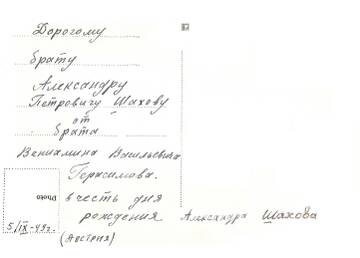 Дорогому
брату
Александру
Петровичу Шахову
от
брата
Вениамина Васильевича
Герасимова.
в честь дня
рождения Александра Шахова
Photo
5/IX-49г.
(Австрия)